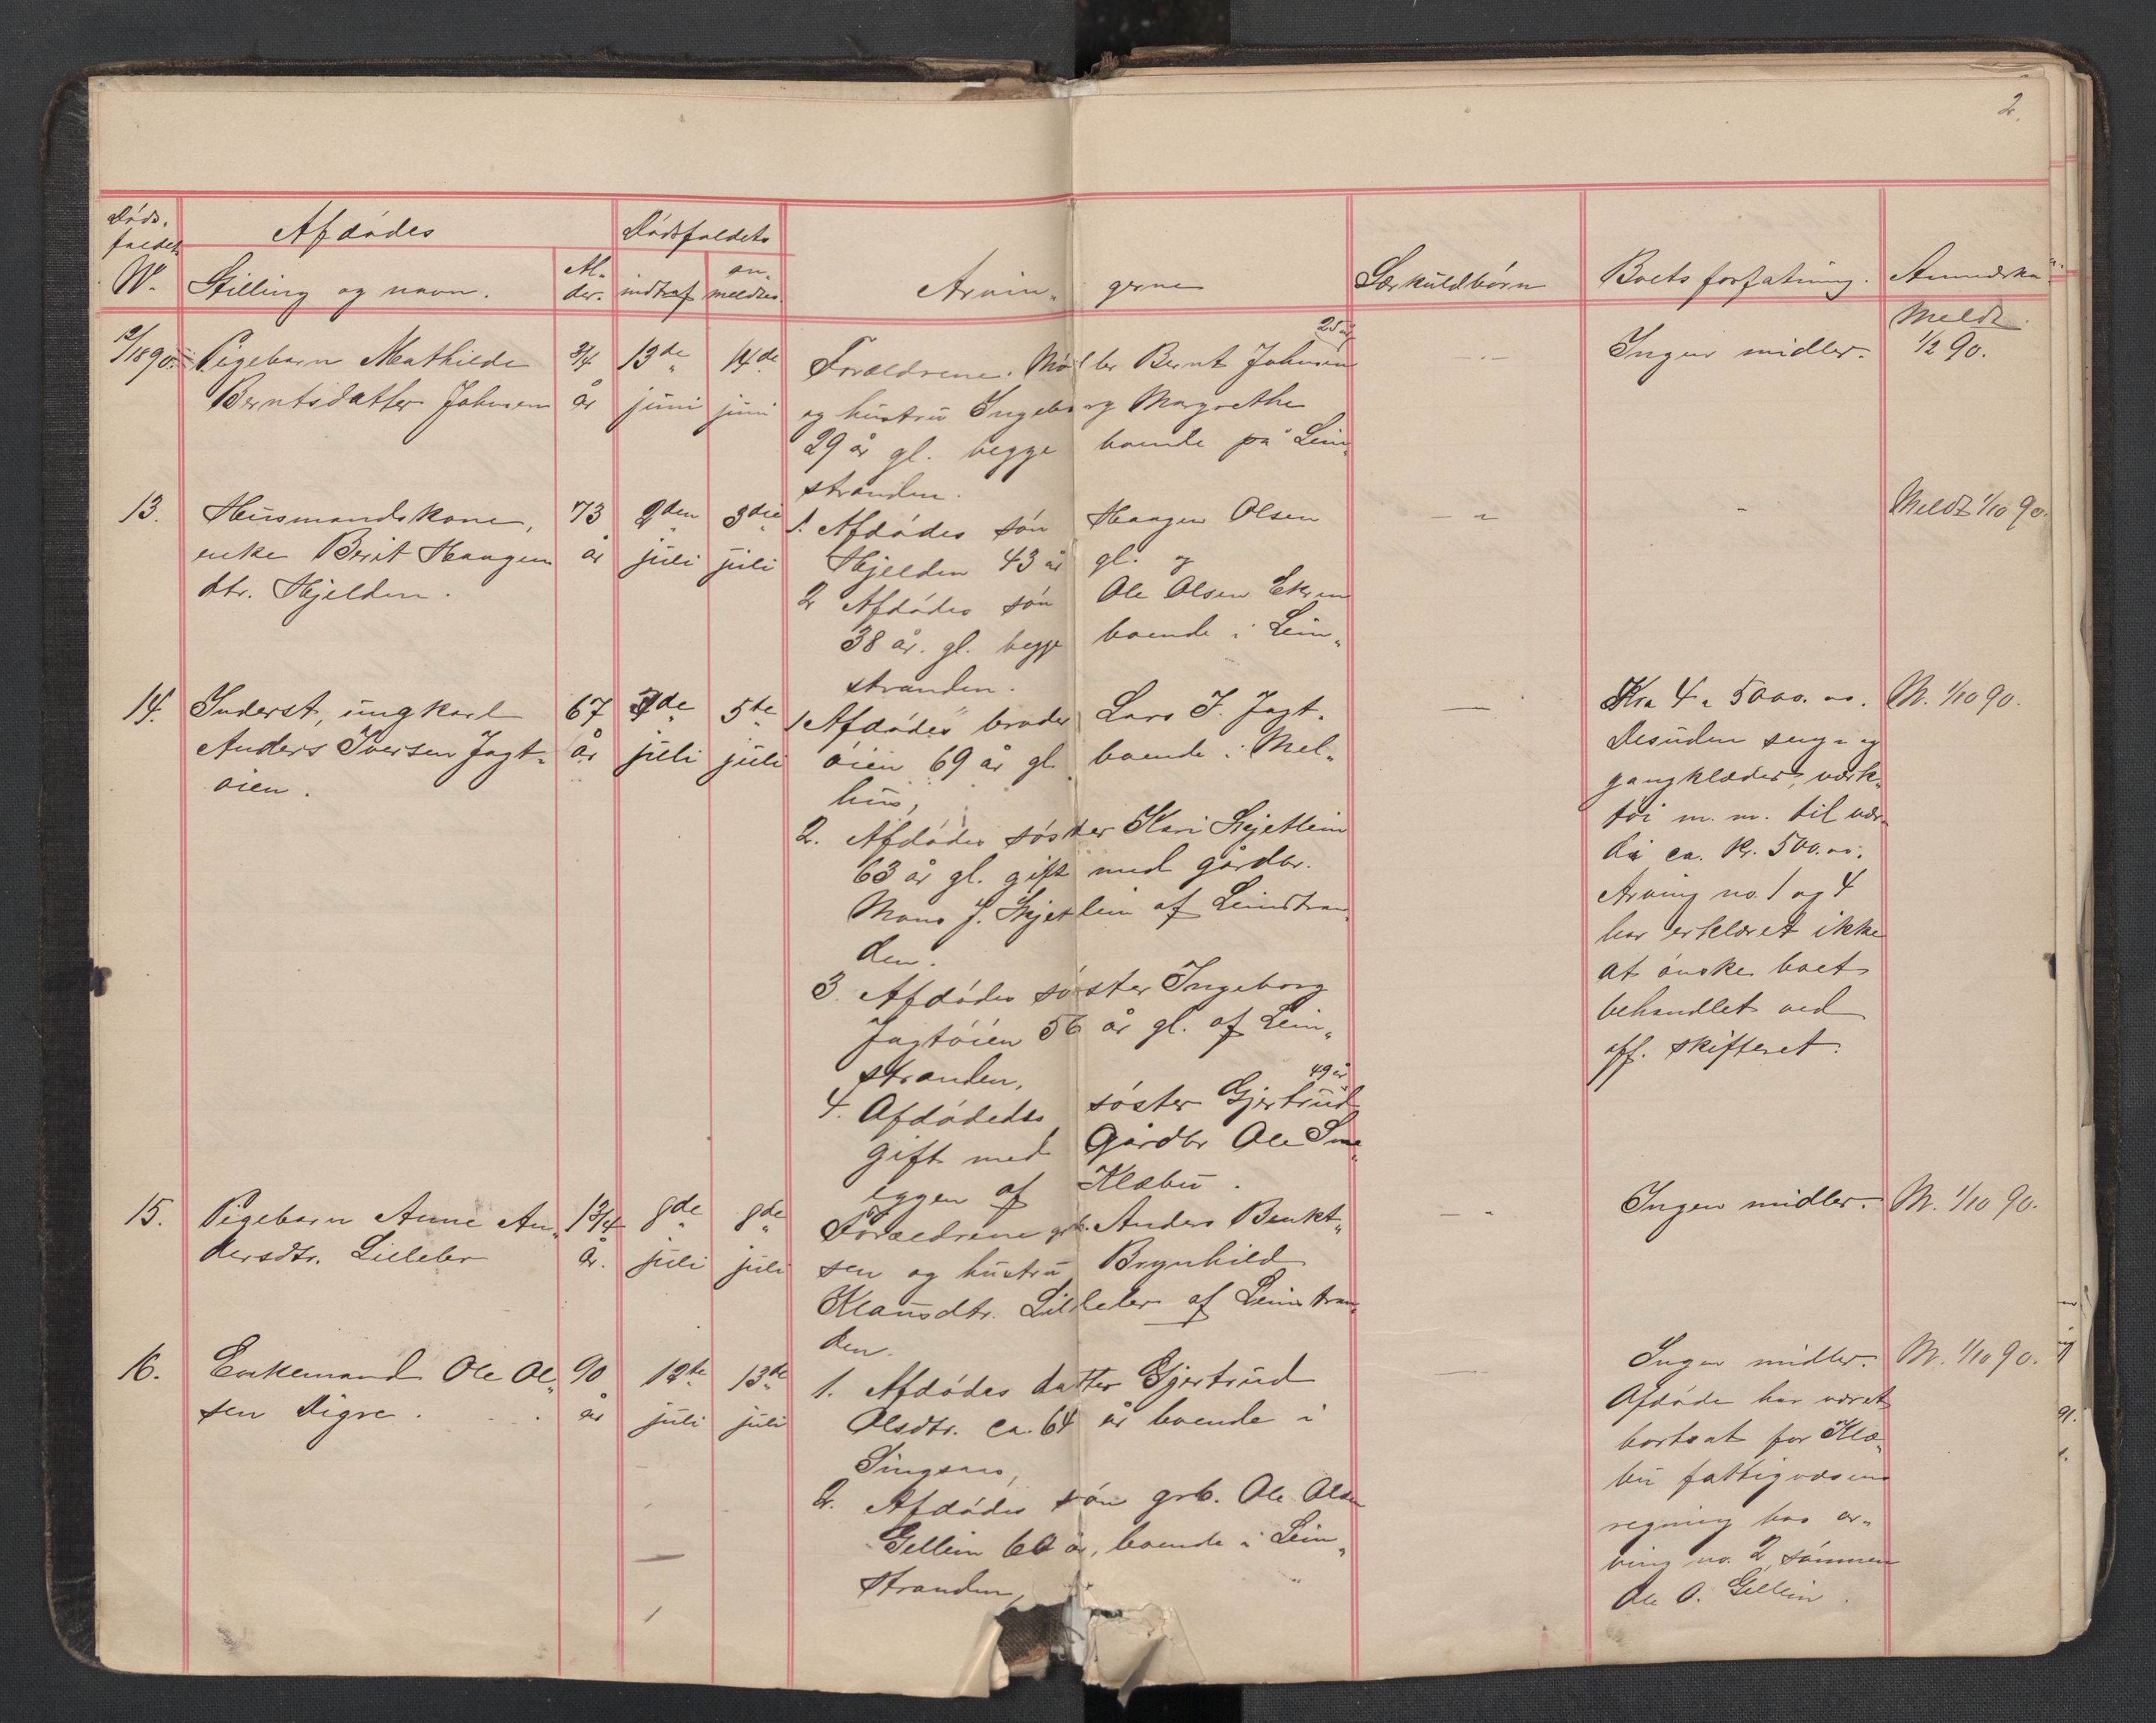 2.
Døds-
faldet
No.
Afdødes
Stilling og navn.
Al-
der.
Dødsfaldets
indtraf
an-
meldtes.
Arvin- gerne
Særkuldbørn
Boets forfatning.
Anmærkn.
12/1890.
Pigebarn Mathilde
Berntsdatter Johnsen
3/4
år
13de
juni
14de
juni
25 år
Forældrene. Møller Bernt Johnsen
og hustru Ingeborg Margrethe
29 år gl. begge boende på Lein-
stranden.
Ingen midler.
Meldt
1/2 90.
13.
Husmandskone,
enke Berit Haagens
dtr. Hjelden.
73
år
2den
juli
3die
juli
1. Afdødes søn Haagen Olsen
Hjelden 43 år gl. og
2 Afdødes søn Ole Olsen Ekren
38 år. gl. begge boende i Lein-
stranden.
Meldt 1/10 90.
14.
Inderst, ungkarl
Anders Iversen Jagt-
øien.
67
år
3de
juli
5te
juli
1 Afdødes broder Lars I. Jagt-
øien 69 år gl. boende i Mel-
hus,
2. Afdødes søster Kari Skjetlein
63 år gl. gift med gårdbr.
Mons J. Skjetlein af Leinstran-
den.
3. Afdødes søster Ingeborg
Jagtøien 56 år gl. af Lein-
stranden.
49 år
4. Afdødedes søster Gjertrud
gift med Gårdbr Ole Sne-
eggen af Klæbu.
Kra 4 a 5000.00.
Desuden seng- og
gangklæder, værk-
tøi m. m. til vær-
di ca. Kr. 500.00.
Arving no. 1 og 4
har erklæret ikke
at ønske boet
behandlet ved
off. skifteret.
M. 1/10 90.
15.
Pigebarn Anne An-
dersdtr. Lilleler
1 3/4
år.
8de
juli
8de
juli
Forældrene grb. Anders Benkt-
sen og hustru Brynhild
Klausdtr. Lilleler af Leinstran-
den.
Ingen midler.
M. 1/10 90.
16.
Enkemand Ole Ol-
sen Digre.
90
år
12te
juli
13de
juli
1. Afdødes datter Gjertrud
Olsdtr. ca. 64 år boende i
Singsaas,
2. Afdødes søn grb. Ole Olsen
Gellein 60 år, boende i Lein-
stranden,
Ingen midler.
Afdøde har været
bortsat for Klæ-
bu fattigvæsens
regning hos ar-
ving no. 2, sønnen
Ole O. Gellein.
M. 1/10 90.